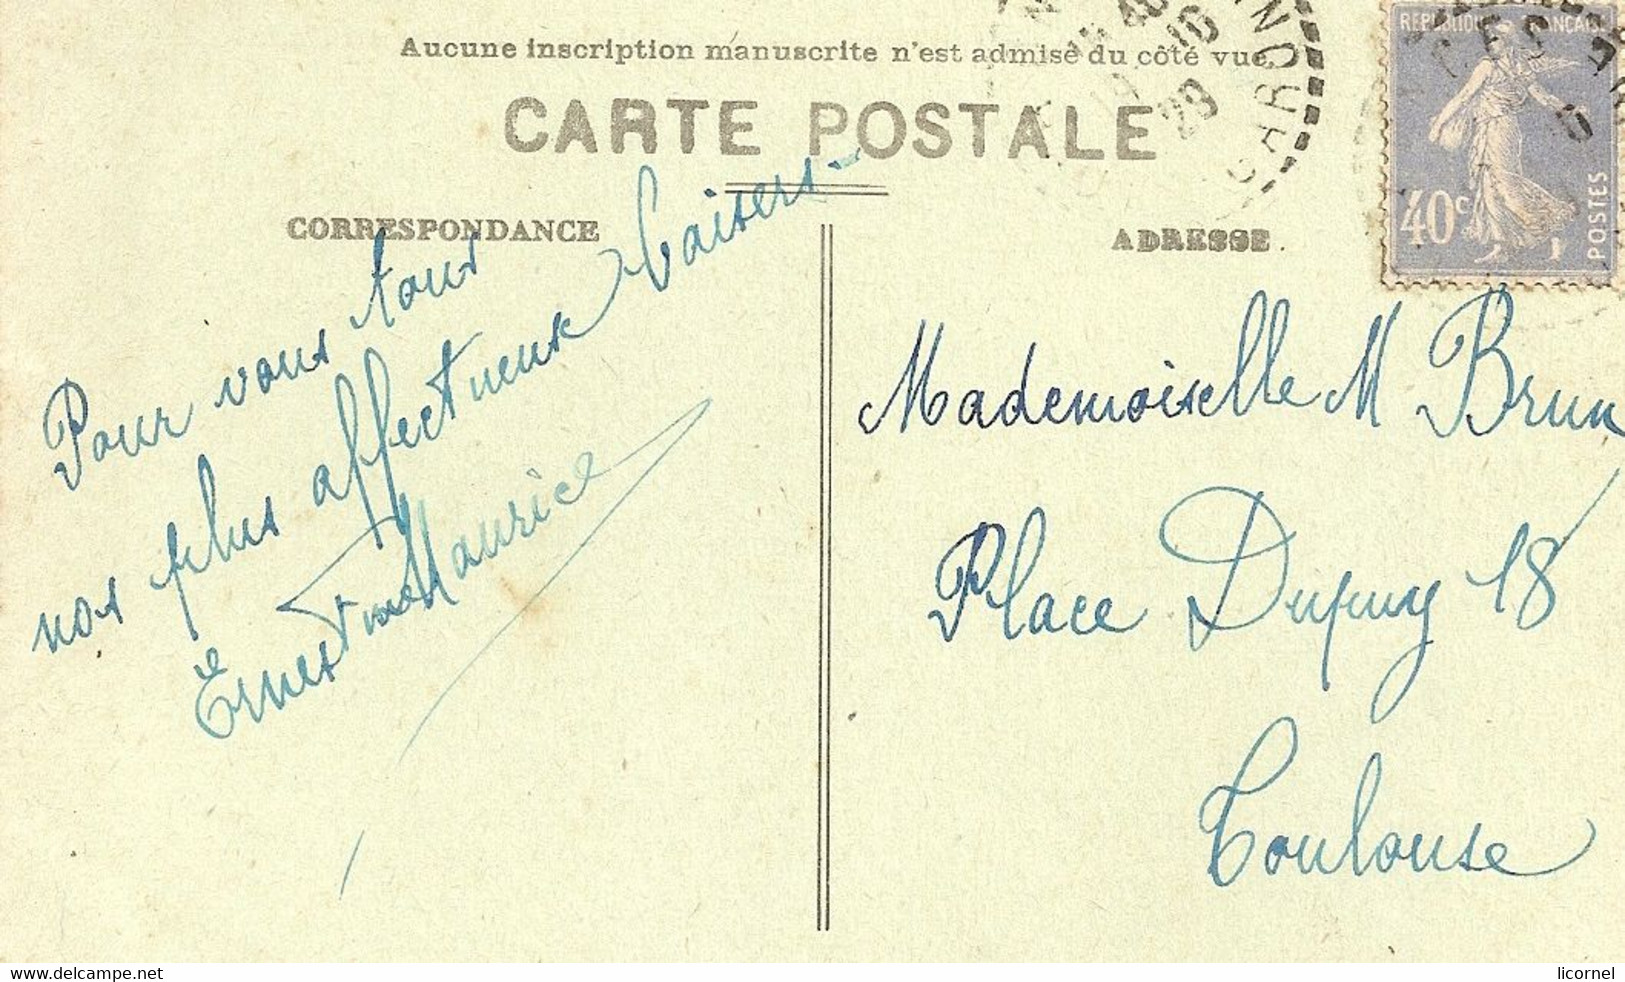 Aucune inscription manuscrite n'est admise du côté vue
CARTE POSTALE
CORRESPONDANCE
ADRESSE.
REPUBLIQUE FRANÇAISE
40c
POSTES
10
28
GARON
Pour vous tous
nos plus affectueux baisers.
Ernest Maurice
Mademoiselle M Brun
Place Dupuy 18
Toulouse
www.delcampe.net
licornel